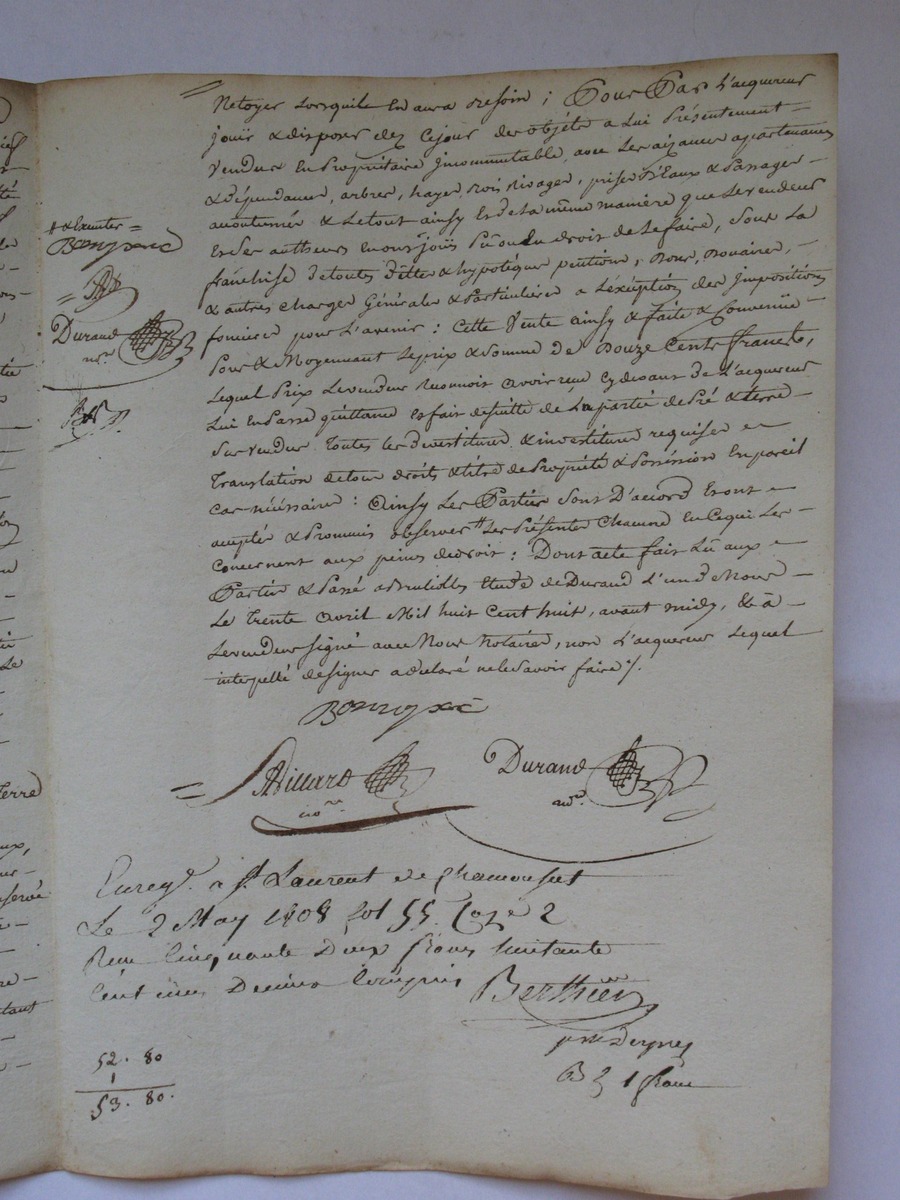 Netoyer Lorsquils En aura Besoin ; Pour Par L'acquereur
jouir & disposer des Cejour des objéts a Lui Présentement
Vendus En Propriétaire Incommutable, avec Ses aizances appartenances
& Dépendances, arbres, hayes, Bois Rivages, prises D'Eaux & Passages
acoutumés & Letout ainsy Et dela même maniére que Levendeur
Et Ses autheurs En ont joüis Pû ou dû droit de Lefaire, Sous La
franchise detoutes dettes & hypotéques pentions, Douaires,
& autres charges Générales & Particulieres a L'éxéption des Impositions
foncieres pour L'avenir : Cette Vente ainsy & faite & Convenüe
Pour & Moyennant Leprix & Somme de Douze Cents francs,
Lequel Prix Levendeur Reconnoit avoir reçu Cydevant de L'acquereur
Lui En Passe quittance Et fait desuitte de Lapartie de Pré & terre
Sus vendus Toutes les devestitures & investitures requises
Translation detous droits & titres de Propriété & Possession En pareil
Cas nécéssaires : Ainsy Les Parties Sont D'accord Et ont
accepté & Promis observer # Les Présentes Chacune En Cequi Les
Concernent aux peines dedroit : Dont acte fait Lû aux
Parties & Passé a Brullioles Etude de Durand L'un de Nous
Le Trente Avril Mil huit Cent huit, avant midy, & à
Levendeur Signé avec Nous Notaires, non L'acquereur Lequel
interpellé designer a déclaré nele Savoir faire /.
# & Exécuter =
Durand
nre
Durand
nre
Enregé. a St. Laurent de Chamousset
Le 2 May 1808 fol 55. Case 2
Recu Cinquante Deux francs huitante
Centimes Decime Compris
Berthier
B 2 1 franc
52. 80
1
53. 80.